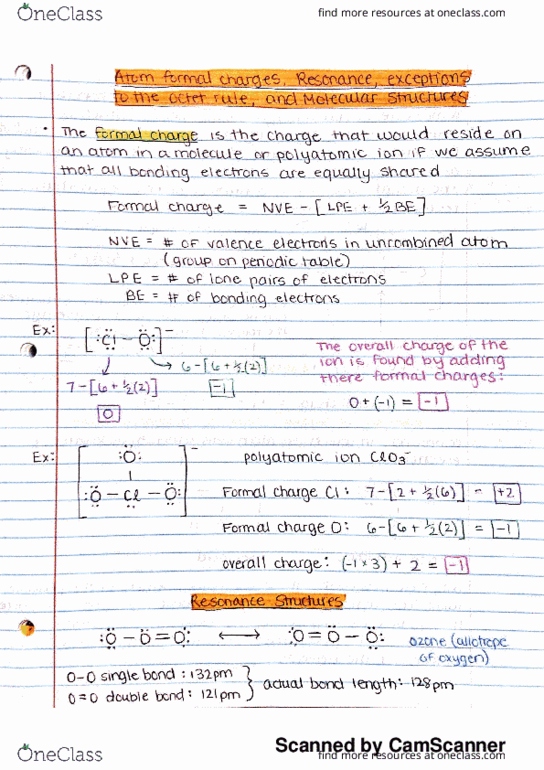 OneClass
find more resources at oneclass.com
Atom formal charges, Resonance, exceptions
to the octet rule, and Molecular Structures
• The formal charge is the charge that would reside on
an atom in a molecule or polyatomic ion if we assume
that all bonding electrons are equally shared
Formal charge = NVE - [LPE + ½BE]
NVE = # of valence electrons in uncombined atom
(group on periodic table)
LPE = # of lone pairs of electrons
BE = # of bonding electrons
Ex:
[:Cl - O:]⁻
6-[6+½(2)]
-1
7-[6+½(2)]
0
The overall charge of the
ion is found by adding
there formal charges:
0+(-1) = -1
Ex:
:O:
:O - Cl - O:
−
polyatomic ion ClO3⁻
Formal charge Cl: 7-[2+½(6)] = +2
Formal charge O: 6-[6+½(2)] = -1
overall charge: (-1×3) + 2 = -1
Resonance Structures
:O - O = O: ⟷ :O = O - O:
ozone (allotrope
of oxygen)
O-O single bond : 132pm
O=O double bond : 121pm
} actual bond length: 128pm
Scanned by CamScanner
OneClass
find more resources at oneclass.com